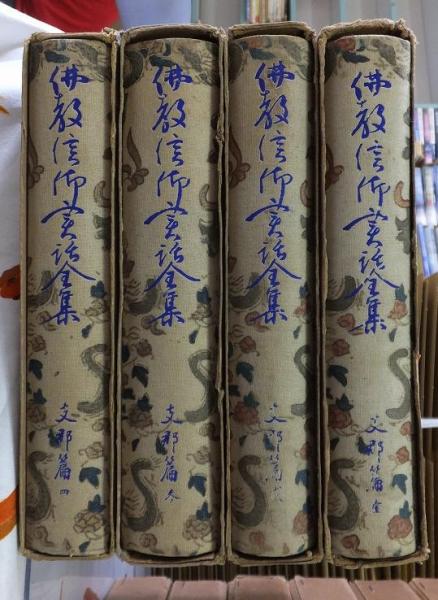 佛教信仰實話全集
支那篇 四
佛教信仰實話全集
支那篇 参
佛教信仰實話全集
支那篇
佛教信仰實話全集
支那篇